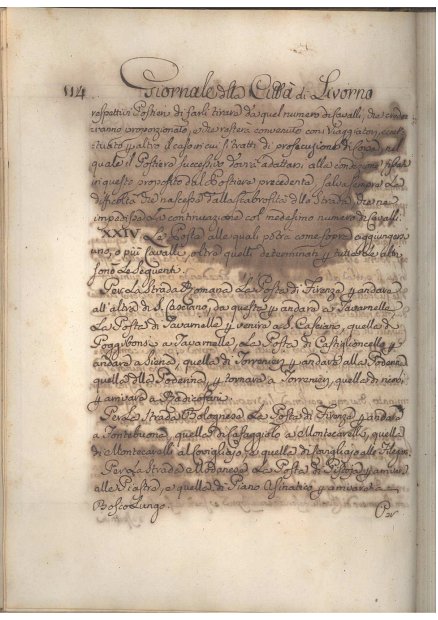 114 Giornale della Città di Livorno
respettivi Postieri di farli tirare da quel numero di Cavalli, che creder
ranno proporzionato, e che resterà convenuto con i Viaggiatori, eccet-
tuato il caso in cui si tratti di prosecuzione di Corsa, nel
quale il Postiere successivo dovrà adattarsi alla condizione fissata
in questo proposito dal Postiere precedente, salva sempre la
difficoltà che nascesse dalla scabrosità della Strada, che ne
impedisse la continuazione col medesimo numero di Cavalli.
XXIV. Le Poste alle quali potrà come sopra aggiungersi
uno, o più Cavalli, oltre quelli determinati
sono le seguenti.
Per la Strada Romana La Posta di Firenze p andare
all'altra di S. Casciano, da questa p andare a Tavarnelle
La Posta di Tavarnelle p venire a S. Casciano, quella di
Poggibonsi a Tavarnelle, La Posta di Castiglioncello p
andare a Siena, quella di Torrenieri p andare alla Poderina
quella della Poderina p tornare a Torrenieri, quella di
p arrivare a Radicofani.
Per la Strada Bolognese La Posta di Firenze p andare
a Fontebuona, quella di Cafaggiolo a Montecarelli, quella
di Montecarelli al Covigliajo, e quella di Covigliajo alle Filigare
Per la Strada Modanese La Posta di Pistoja p arrivare
alle Piastre, e quella di Piano Asinatico p arrivare a
Bosco Lungo.
Per